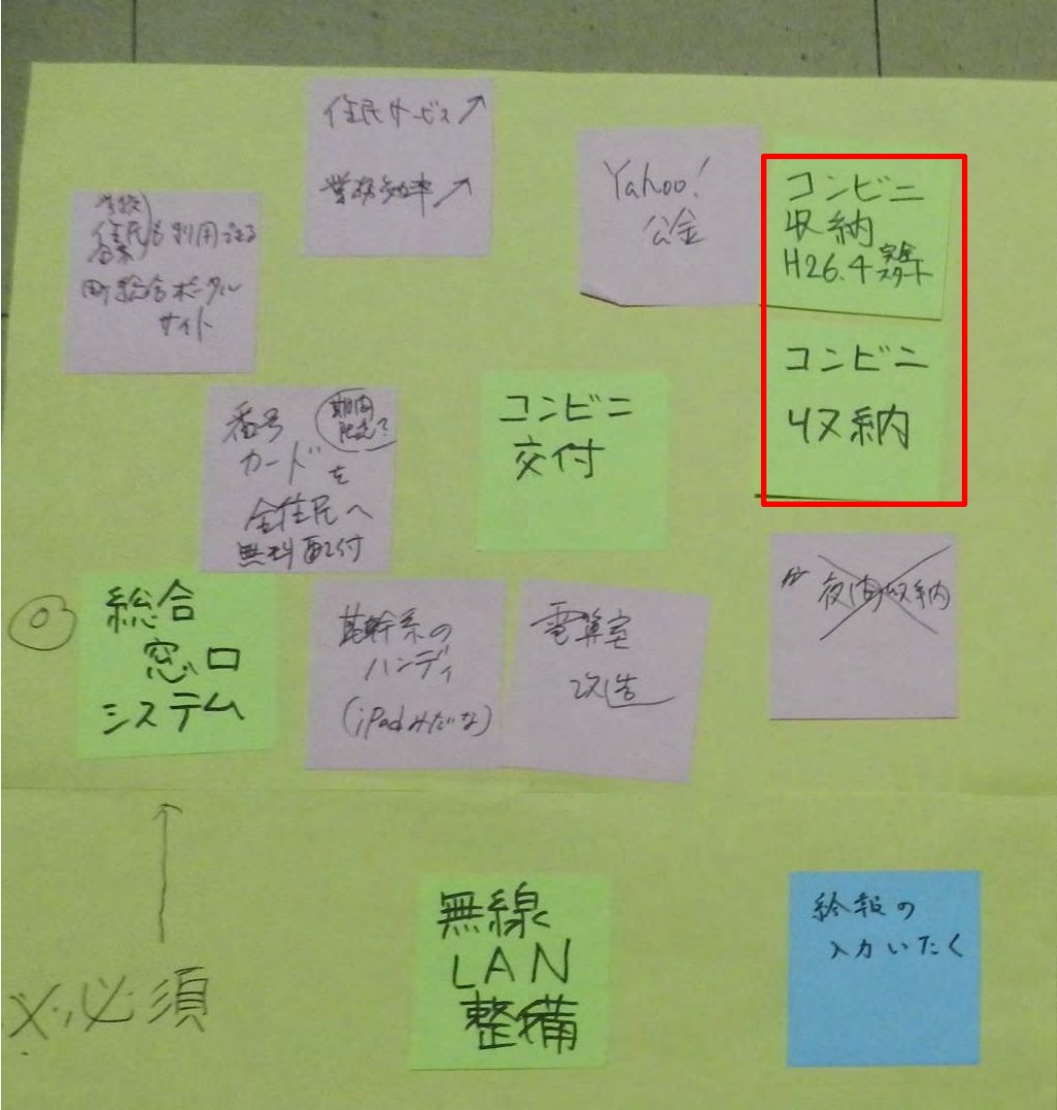 住民サービス↗
業務効率↗
Yahoo!
公金
コンビニ
収納
H26.4 完全
スタート
学校
住民も利用できる
企業
町総合ポータル
サイト
コンビニ
収納
番号
カードを
全住民へ
無料配付
期間
限定?
コンビニ
交付
総合
窓口
システム
基幹系の
ハンディ
(iPadみたいな)
電算室
改造
夜間収納
※必須
無線
LAN
整備
給報の
入力いたく